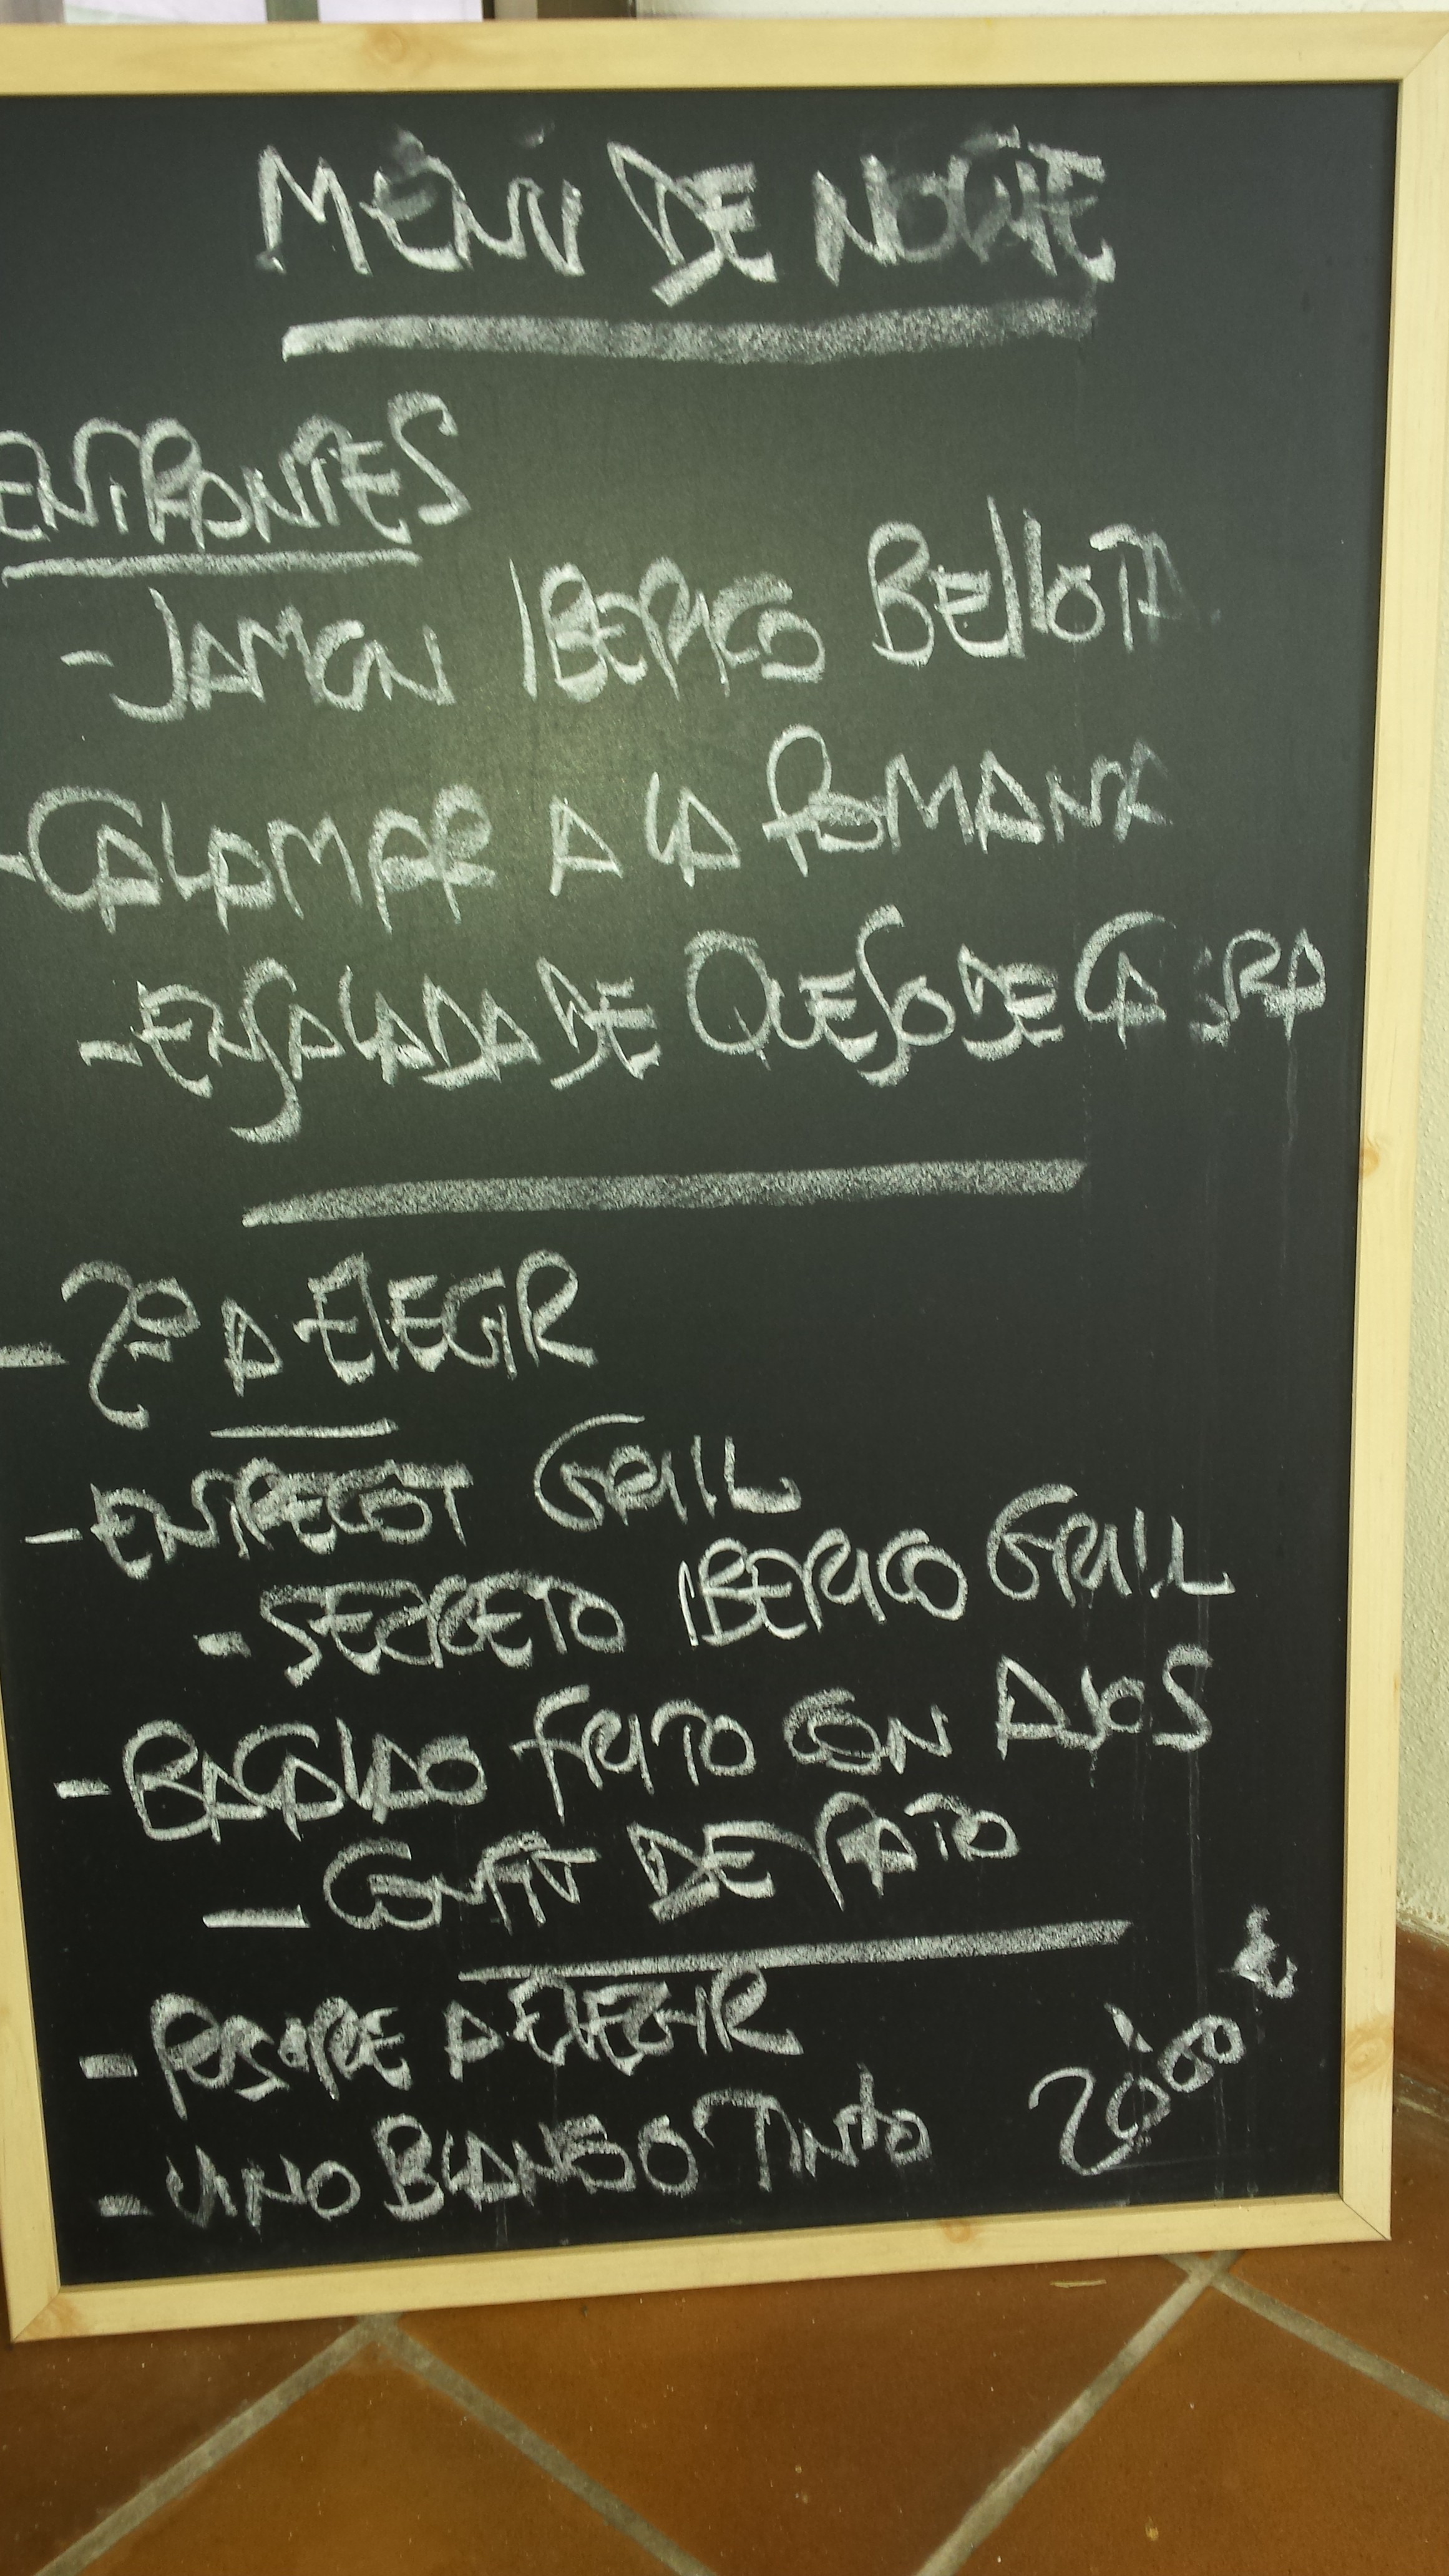 MENU DE NOCHE
ENTRANTES
- JAMON IBERICO BELLOTA
- CALAMAR A LA ROMANA
- ENSALADA DE QUESO DE CABRA
- 2º A ELEGIR
- ENTRECOT GRILL
- SECRETO IBERICO GRILL
- BACALAO FRITO CON AJOS
- CONFIT DE PATO
- POSTRE A ELEGIR
- VINO BLANCO O TINTO 20'00 €